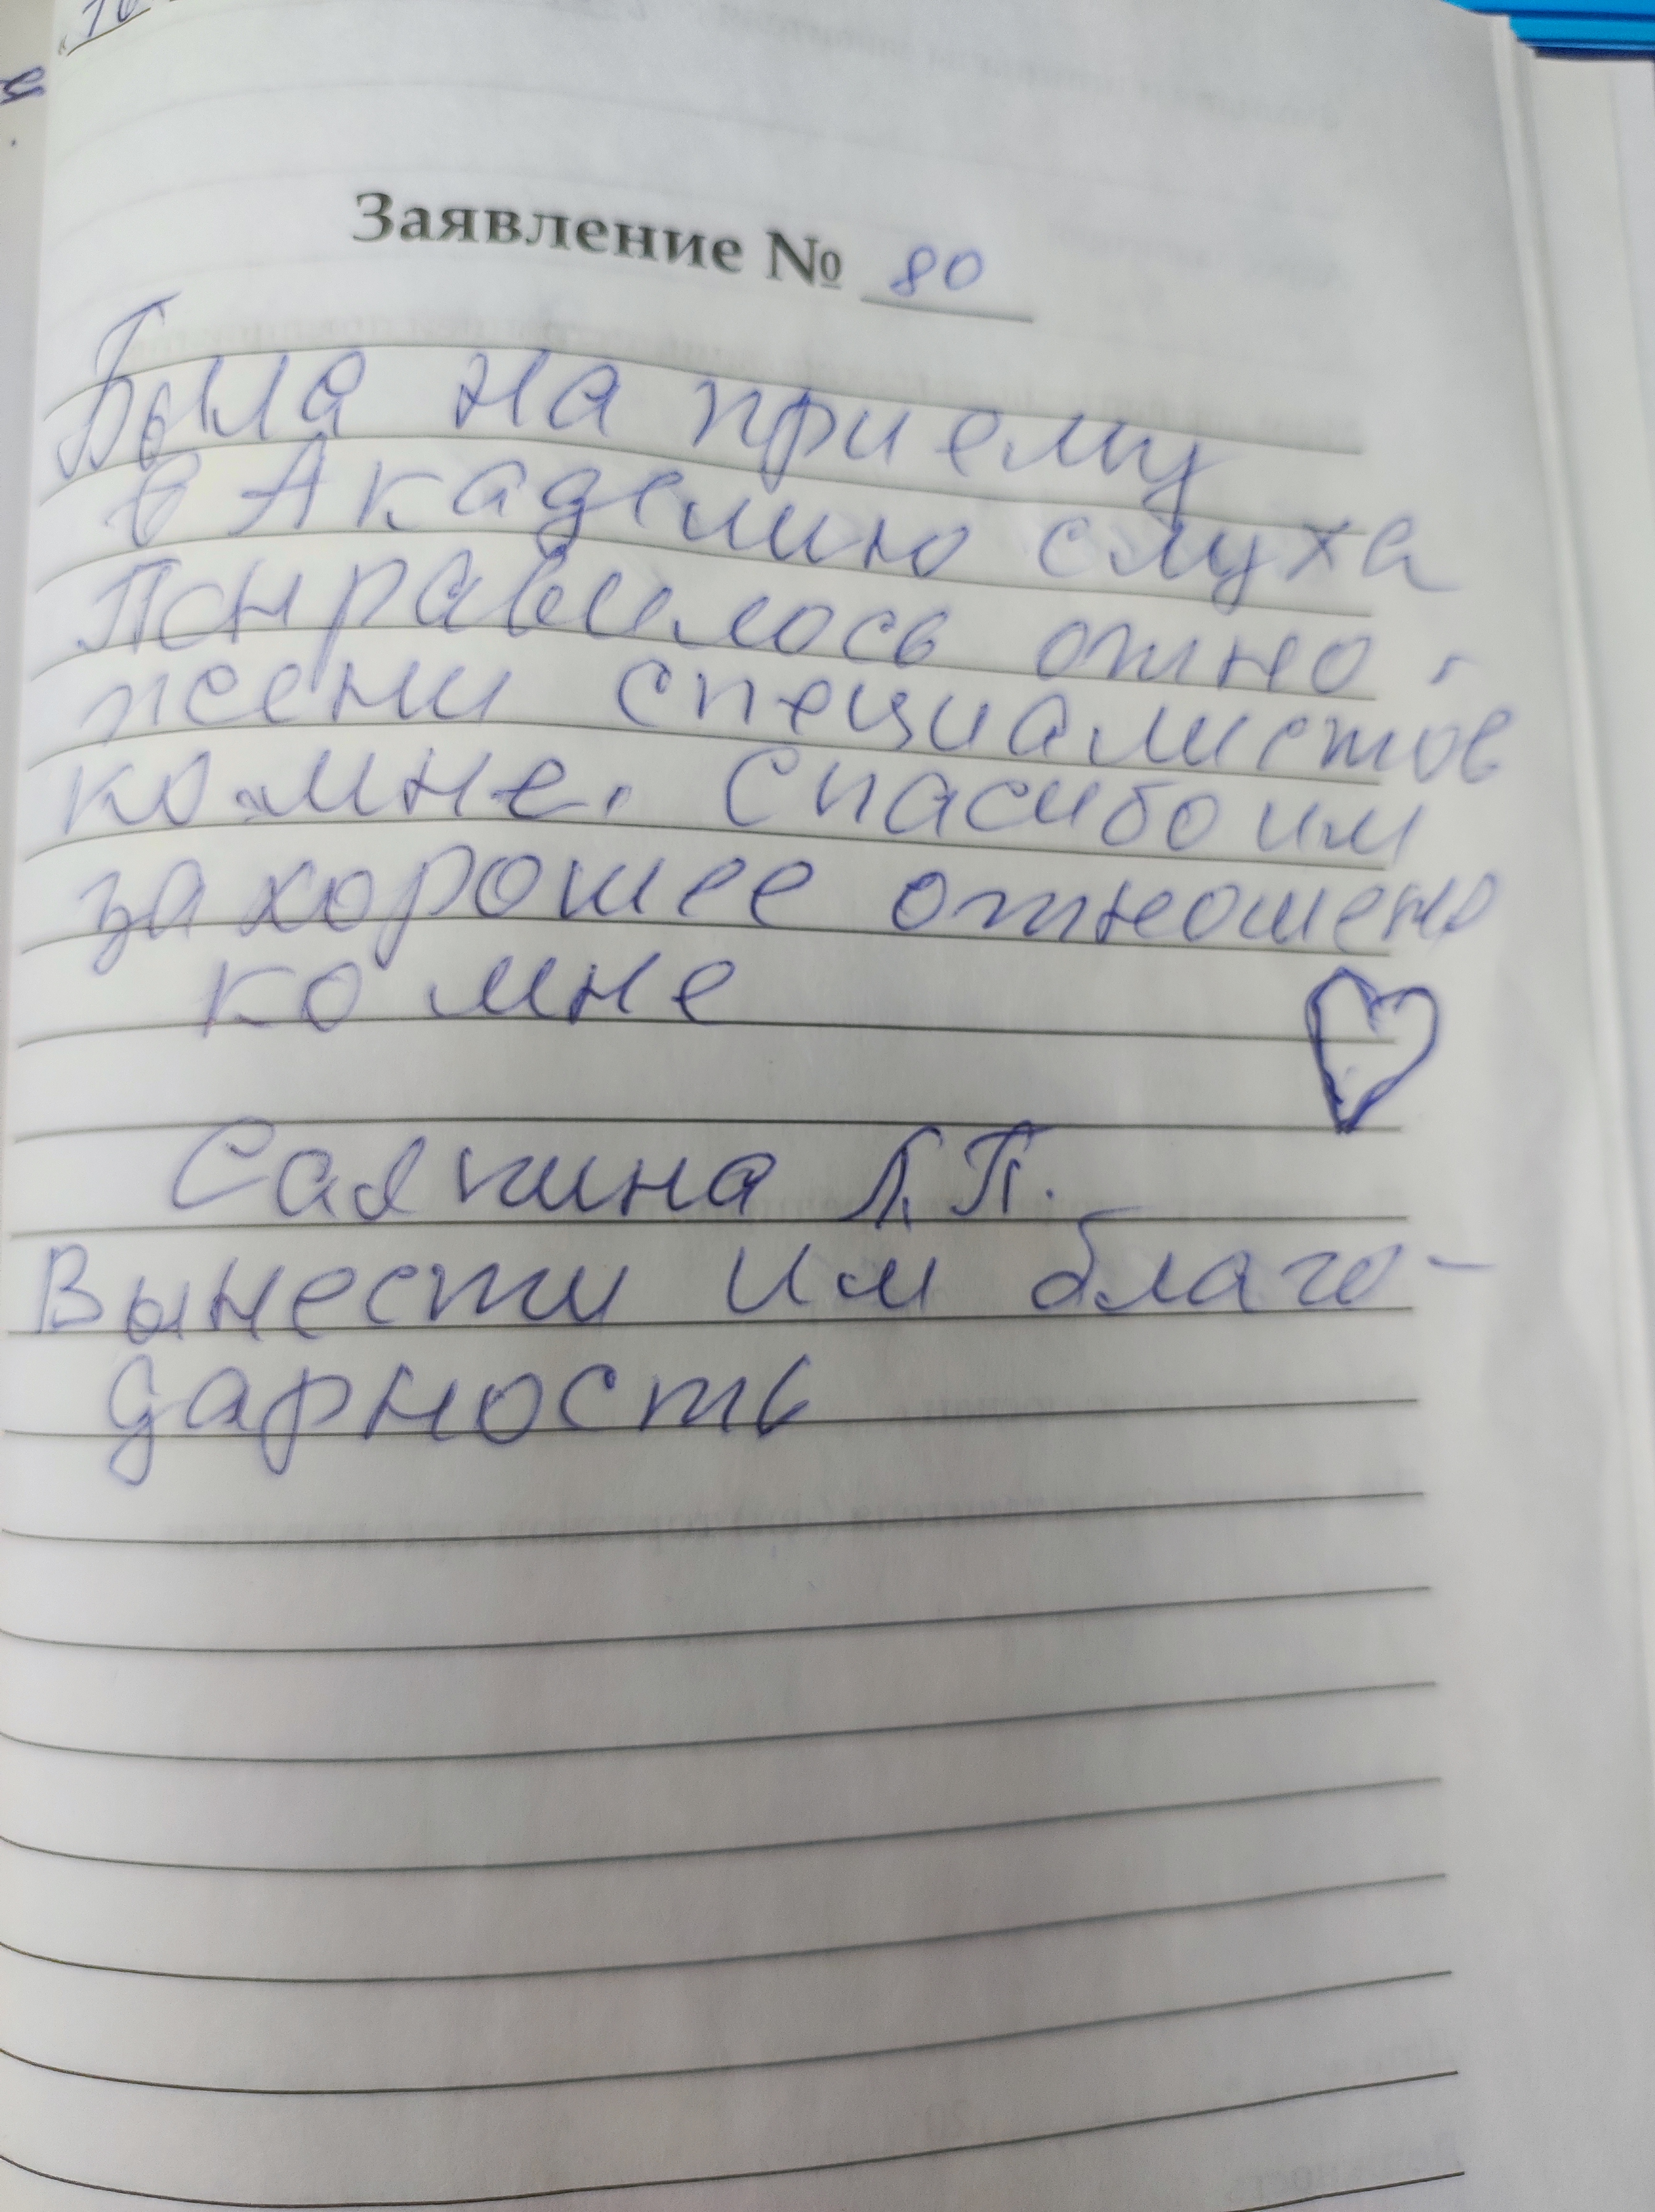 Заявление № 80
Была на приему
в Академию слуха
Понравилось отно-
жсени специалистов
ко мне. Спасибо им
за хорошее отношено
ко мне
Л.П.
Вынести им благо-
дарность